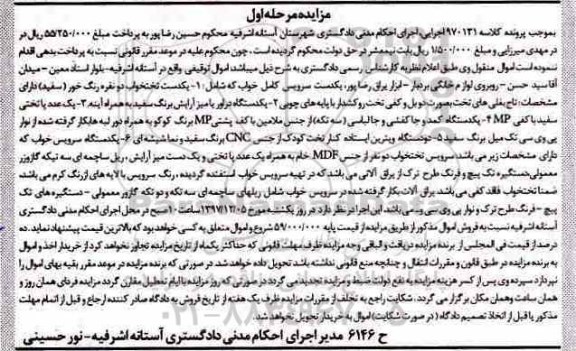 مزایده مرحله اول
بموجب پرونده کلاسه ۹۷۰۱۳۱ اجرایی، اجرای احکام مدنی دادگستری شهرستان آستانه اشرفیه محکوم حسین رضا پور به پرداخت مبلغ ۵۵/۲۵۰/۰۰۰ ریال در
در مهدی میرزایی و مبلغ ۱/۵۰۰/۰۰۰ ریال بابت نیمعشر در حق دولت محکوم گردیده است . چون محکوم علیه در موعد مقرر قانونی نسبت به پرداخت بدهی اقدام
ننموده است اموال منقول وی طبق اعلام نظریه کارشناس رسمی دادگستری به شرح ذیل میباشد، اموال توقیفی واقع در آستانه اشرفیه- بلوار استاد معین - میدان
آقا سید حسن - روبروی لوازم خانگی بردبار - ابزار یراق رضا پور، یکدست سرویس کامل خواب که شامل : ۱- یکدست تختخواب دو نفره رنگ خور (سفید) دارای
مشخصات : تاج بغلی های تخت بصورت دوبل و کفی تخت روکشدار با پایه های چوبی ۲- یکدستگاه دراور با میز آرایش برنگ سفید به همراه آینه ۳- یک عدد پا تختی
سفید با کفی MP ۴- یکدستگاه کمد و جا کفشی و جا لباسی (سه تکه) از جنس ملامین با کف پشتی MP برنگ کوکو به همراه دور لبه هایکار گرفته شده از نوار
پی وی سی تک میل برنگ سفید ۵- دودستگاه ویترین ایستاده کنار تخت کودک از جنس CNC برنگ سفید و نما شیشه ای ۶- یکدستگاه سرویس خواب که
دارای مشخصات زیر می باشد سرویس تختخواب دو نفر از جنس MDF خام به همراه یک عدد پا تختی و یک دست میز آرایش، ریل ساچمه ای سه تیکه گازوزر
معمولی، دستگیره تک پیچ و فرنگ طرح ترک از یراق آلاتی می باشد که در تهیه سرویس خواب استفده گردیده ، رنگ سرویس با لایه های ازرنگ کرم می باشد،
ضمنا تختخواب فاقد کفی می باشد. یراق آلات بکار گرفته شده در سرویس خواب شامل ریلهای ساچمه ای سه تکه و دو تکه گازور معمولی - دستگیره های تک
پیچ - فرنگ طرح ترک و نوار پی وی سی می باشد. این اجرا در نظر دارد در روز یکشنبه مورخ ۱۳۹۷/۱۲/۰۵ ساعت ۱۰ صبح در محل اجرای احکام مدنی دادگستری
آستانه اشرفیه نسبت به فروش اموال مذکور از طریق مزایده از قیمت پایه ۵۹/۰۰۰/۰۰۰ شروع و اموال متعلق به کسی خواهد بود که بالاترین قیمت پیشنهاد نماید. ده
درصد از قیمت فی المجلس از برنده مزایده دریافت و الباقی وجه مزایده ظرف مهلت قانونی که حداکثر یکماه از تاریخ مزایده تجاوز نخواهد کرد از خریدار اخذ و اموال
به برنده مزایده در طبق قانون و مقررات انتقال و چنانچه منع قانونی نداشته باشد تحویل داده خواهد شد. در صورتی که برنده مزایده در موعد مقرر بقیه بهای اموال را
نپردازد سپرده وی پس از کسر هزینه مزایده به نفع دولت ضبط و مزایده تجدید می گردد در صورتی که روز مزایده باایام تعطیل مقارن گردد مزایده فردای همان روز و
همان ساعت وهمان مکان برگزار می گردد. شکایت راجع به تخلف از مقررات مزایده ظرف یک هفته از تاریخ فروش به دادگاه صادر کننده ارجاع و قبل از اتمام مهلت
مذکور یا قبل از اتخاذ تصمیم دادگاه ( در صورت شکایت) اموال به خریدار تحویل نخواهد شد.
ح ۶۱۴۶ مدیر اجرای احکام مدنی دادگستری آستانه اشرفیه- نور حسینی